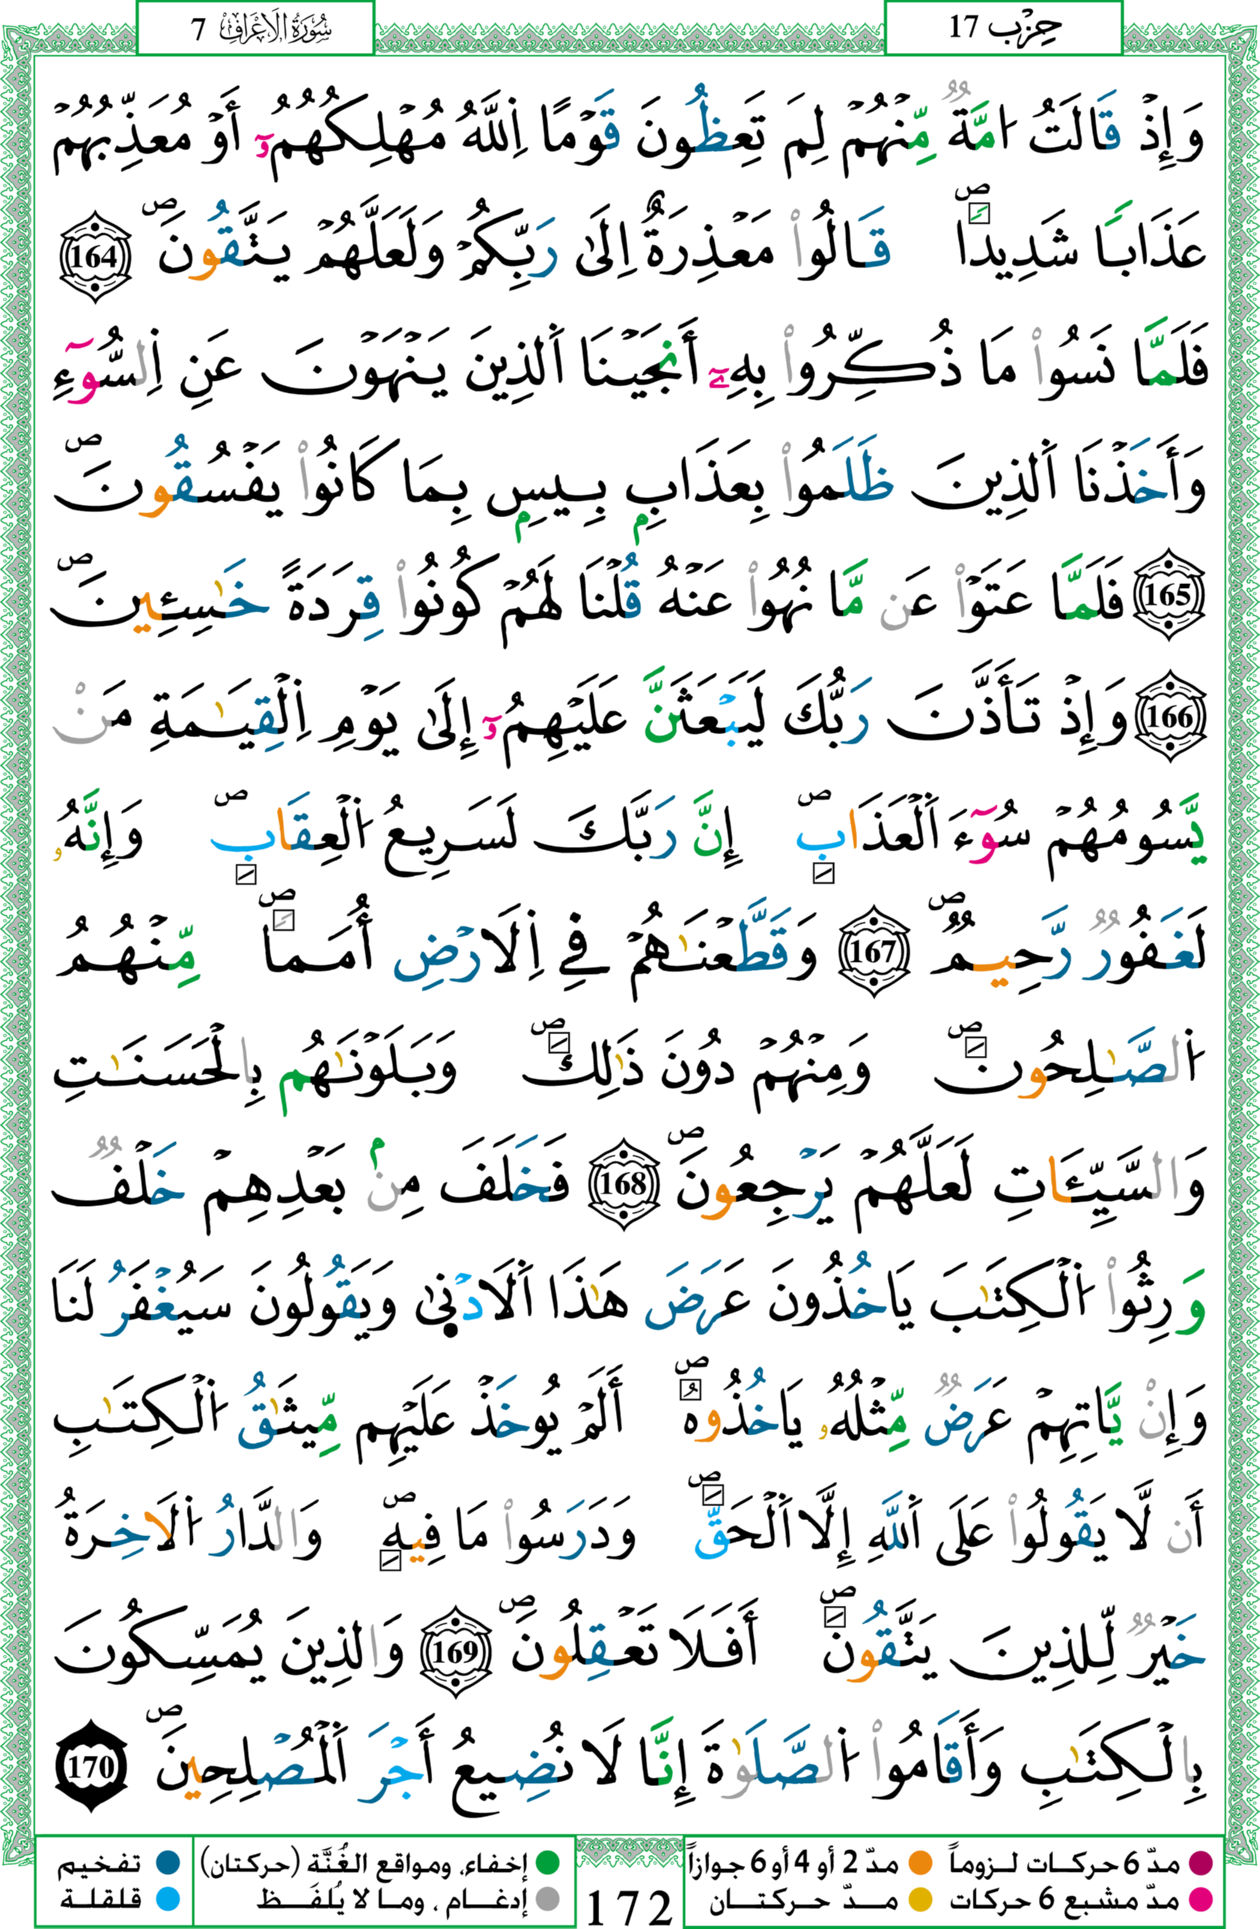 سُورَةُ الَاعْرَافِ 7
حِزْب 17
وَإِذْ قَالَتُ امَّةٌ مِّنْهُمْ لِمَ تَعِظُونَ قَوْمًا اِللَّهُ مُهْلِكُهُمُۥٓ أَوْ مُعَذِّبُهُمْ
عَذَابًا شَدِيدًا ۖ قَالُواْ مَعْذِرَةٌ اِلَىٰ رَبِّكُمْ وَلَعَلَّهُمْ يَتَّقُونَۖ 164
فَلَمَّا نَسُواْ مَا ذُكِّرُواْ بِهِۦٓ أَنجَيْنَا اَلذِينَ يَنْهَوْنَ عَنِ اِلسُّوٓءِ
وَأَخَذْنَا اَلذِينَ ظَلَمُواْ بِعَذَابِۭ بِيسِۭ بِمَا كَانُواْ يَفْسُقُونَۖ
165 فَلَمَّا عَتَوْاْ عَن مَّا نُهُواْ عَنْهُ قُلْنَا لَهُمْ كُونُواْ قِرَدَةً خَٰسِئِينَۖ
166 وَإِذْ تَأَذَّنَ رَبُّكَ لَيَبْعَثَنَّ عَلَيْهِمُۥٓ إِلَىٰ يَوْمِ اِلْقِيَٰمَةِ مَنْ
يَّسُومُهُمْ سُوٓءَ اَلْعَذَابِۖ إِنَّ رَبَّكَ لَسَرِيعُ اُلْعِقَابِۖ وَإِنَّهُۥ
لَغَفُورٌ رَّحِيمٌۖ 167 وَقَطَّعْنَٰهُمْ فِي اِلَارْضِ أُمَمًاۖ مِّنْهُمُ
اُلصَّٰلِحُونَۖ وَمِنْهُمْ دُونَ ذَٰلِكَۖ وَبَلَوْنَٰهُم بِالْحَسَنَٰتِ
وَالسَّيِّـَٔاتِ لَعَلَّهُمْ يَرْجِعُونَۖ 168 فَخَلَفَ مِنۢ بَعْدِهِمْ خَلْفٌ
وَرِثُواْ اُلْكِتَٰبَ يَاخُذُونَ عَرَضَ هَٰذَا اَلَادْنۭيٰ وَيَقُولُونَ سَيُغْفَرُ لَنَا
وَإِنْ يَّاتِهِمْ عَرَضٌ مِّثْلُهُۥ يَاخُذُوهُۖ أَلَمْ يُوخَذْ عَلَيْهِم مِّيثَٰقُ اُلْكِتَٰبِ
أَن لَّا يَقُولُواْ عَلَى اَللَّهِ إِلَّا اَلْحَقَّۖ وَدَرَسُواْ مَا فِيهِۖ وَالدَّارُ اُلَاخِرَةُ
خَيْرٌ لِّلذِينَ يَتَّقُونَۖ أَفَلَا تَعْقِلُونَۖ 169 وَالذِينَ يُمَسِّكُونَ
بِالْكِتَٰبِ وَأَقَامُواْ اُلصَّلَوٰةَ إِنَّا لَا نُضِيعُ أَجْرَ اَلْمُصْلِحِينَۖ 170
مدّ 6 حركات لـزوماً مدّ 2 أو 4 أو 6 جوازاً
مدّ مشبع 6 حركات مـدّ حركتـان
172
إخفاء، ومواقع الغُنَّة (حركتان) تفخيم
إدغـام ، ومـا لا يُلفَـظ قلقلـة